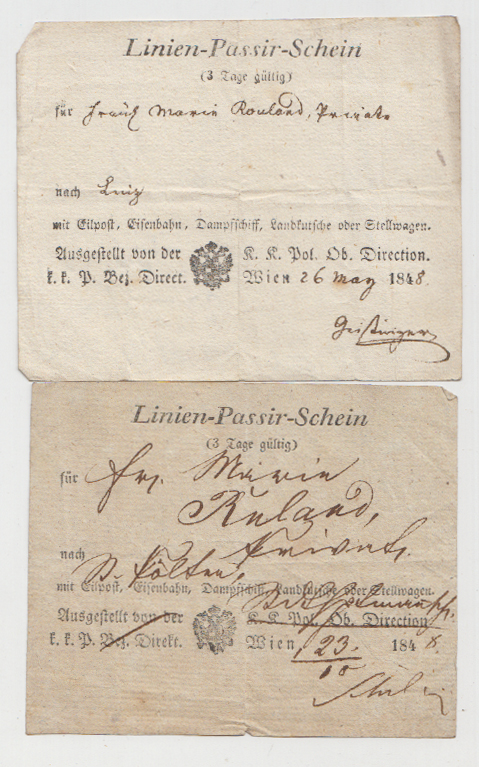 Linien-Passir-Schein
(3 Tage gültig)
für Fräul. Marie Rouland, Private
nach Linz
mit Eilpost, Eisenbahn, Dampfschiff, Landkutsche oder Stellwagen.
Ausgestellt von der K. K. Pol. Ob. Direction.
k. k. P. Bez. Direct. Wien 26 May 1848.
Linien-Passir-Schein
(3 Tage gültig)
für Fr. Marie
Ruland,
Private.
nach St. Pölten,
mit Eilpost, Eisenbahn, Dampfschiff, Landkutsche oder Stellwagen.
Ausgestellt von der K. K. Pol. Ob. Direction
k. k. P. Bez. Direkt. Wien 23. 1848.
10